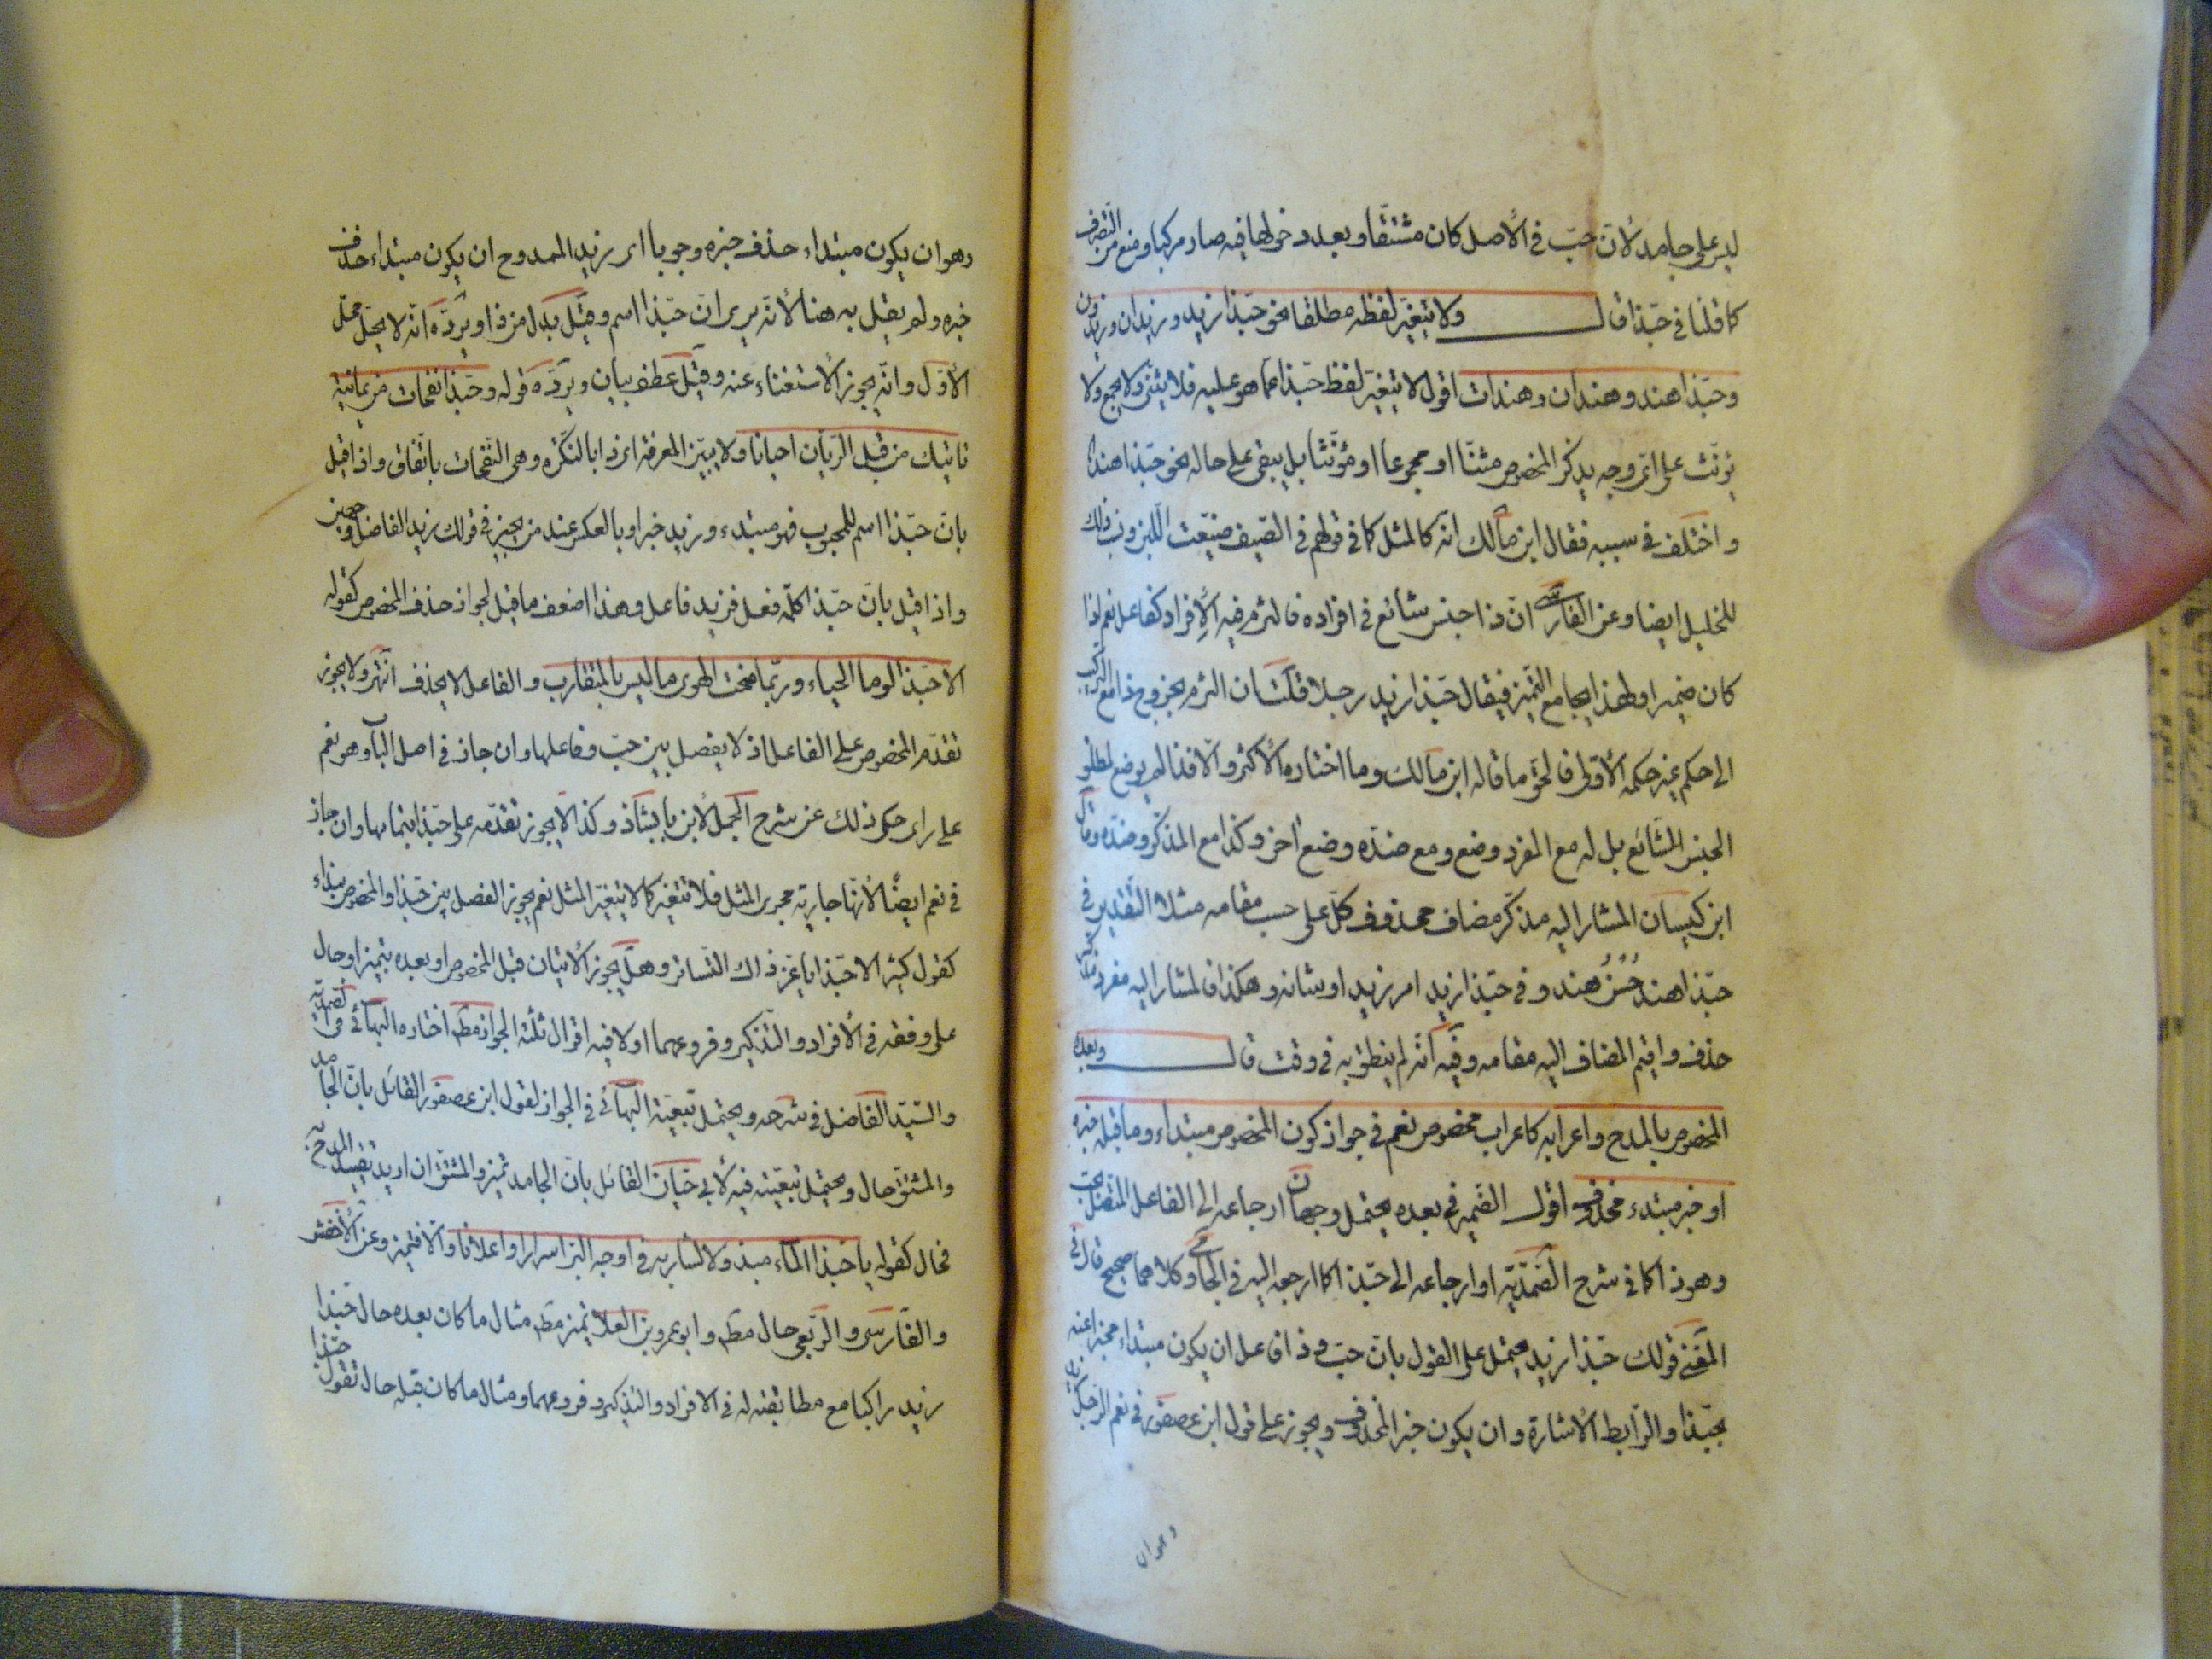 ليدل على جامد لأنّ حبّ في الأصل كان مشتقّا وبعد دخولها فيه صار مركبا ومنع من التصرف
كما قلنا في حبّذا قال ولا يتغيّر لفظه مطلقا نحو حبّذا زيد وزيدان وزيدون
وحبّذا هند وهندان وهندات اقول لا يتغيّر لفظ حبّذا عما هو عليه فلا يثنّى ولا يجمع ولا
يؤنّث على اىّ وجه يذكر المخصوص مثنّا او مجموعا او مؤنّثا بل يبقى على حاله نحو حبّذا هند
واختلف في سببه فقال ابن مالك انّه كالمثل كما في قولهم في الصّيف ضيّعت اللّبن ونسب ذلك
للخليل ايضا وعن الفارسى انّ ذا جنس شائع في افراده فالتزم فيه الإفراد كفاعل نعم اذا
كان ضميرا ولهذا يجامع التّميز فيقال حبّذا زيد رجلا قلت ان التزم بخروج ذا مع التركيب
الى حكم غير حكمه الأوّل فالحقّ ما قاله ابن مالك وما اختاره الأكثر والّا فذا لم يوضع لمطلق
الجنس الشّائع بل له مع المفرد وضع ومع ضدّه وضع آخر وكذا مع المذكّر وضدّه وقال
ابن كيسان المشار اليه مذكّر مضاف محذوف كلّ على حسب مقامه مثلا التّقدير في
حبّذا هند حُسْنُ هند وفي حبّذا زيد امر زيد او شانه وهكذا فالمشار اليه مفرد مذكر
حذف واقيم المضاف اليه مقامه وفيه انّه لم ينطق به في وقت قال وبعده
المخصوص بالمدح واعرابه كاعراب مخصوص نعم في جواز كون المخصوص مبتداء وما قبله خبره
او خبر مبتدء محذوف اقول الضّمير في بعده يحتمل وجهان ارجاعه الى الفاعل المتصل بحبّ
وهو ذا كما في شرح الصّمديّة او ارجاعه الى حبّذا كما ارجعه اليه في الجامى وكلاهما صحيح قال في
المغنى قولك حبّذا زيد يحتمل على القول بانّ حبّ وذا فاعل ان يكون مبتداء مخبرا عنه
بحبّذا والرّابط الأشارة وان يكون خبرا لمحذوف ويجوز على قول ابن عصفور في نعم الرّجل زيد
وهوان
وهو ان يكون مبتداء حذف خبره وجوبا اى زيد الممدوح ان يكون مبتداء حذف
خبره ولم يقل به هنا لأنّه يرى انّ حبّذا اسم وقيل بدل من ذا ويردّه انّه لا يحلّ محلّ
الأوّل وانّه يجوز الأستغناء عنه وقيل عطف بيان ويردّه قوله وحبّذا نفحات من يمانية
تاتيك من قبل الرّيّان احيانا ولا يبيّن المعرفة اى ذا بالنّكرة وهى النّفحات باتّفاق واذا قيل
بانّ حبّذا اسم للمحبوب فهو مبتدء وزيد خبر او بالعكس عند من يجيز في قولك زيد الفاضل وجهين
واذا قيل بانّ حبّذا كلّه فعل فزيد فاعل وهذا اضعف ما قيل لجواز حذف المخصوص كقوله
الا حبّذا لوما الحياء وربّما منحت الهوى ما ليس بالمتقارب والفاعل لا يحذف انتهى ولا يجوز
تقدّم المخصوص على الفاعل اذ لا يفصل بين حبّ وفاعلها وان جاز في اصل الباب وهو نعم
على راى حكى ذلك عن شرح الجمل لأبن بابشاذ وكذا لا يجوز تقدّمه على حبّذا بتمامها وان جاز
في نعم ايضًا لأنّها جارية مجرى المثل فلا تتغير كما لا يتغيّر المثل نعم يجوز الفصل بين حبّذا والمخصوص بنداء
كقول كثير الا حبّذا يا عزّ ذاك التّساتر وهل يجوز الأتيان قبل المخصوص او بعده بتميز او حال
على وفقه في الأفراد والتّذكير وفروعهما اولا فيه اقوال ثلثة الجواز مط اختاره البهائى في الصمدية
والسّيّد الفاضل في شرحه ويحتمل تبعيّة البهائى في الجواز لقول ابن عصفور القائل بانّ الجامد
والمشتق حال ويحتمل تبعيّته فيه لأبى حيّان القائل بانّ الجامد تميز والمشتقّ ان اريد تقييد المدح به
فحال كقوله يا حبّذا الماء مبذولا لشاربه في اوجه البرّ اسرارا واعلانا والّا فتميز وعن الأخفش
والفارسى والرّبعى حال مط وابو عمرو بن العلا تميز مط مثال ما كان بعده حال حبّذا
زيد راكبا مع مطابقته له في الافراد والتذكير وفروعهما ومثال ما كان قبله حال تقول حبّذا